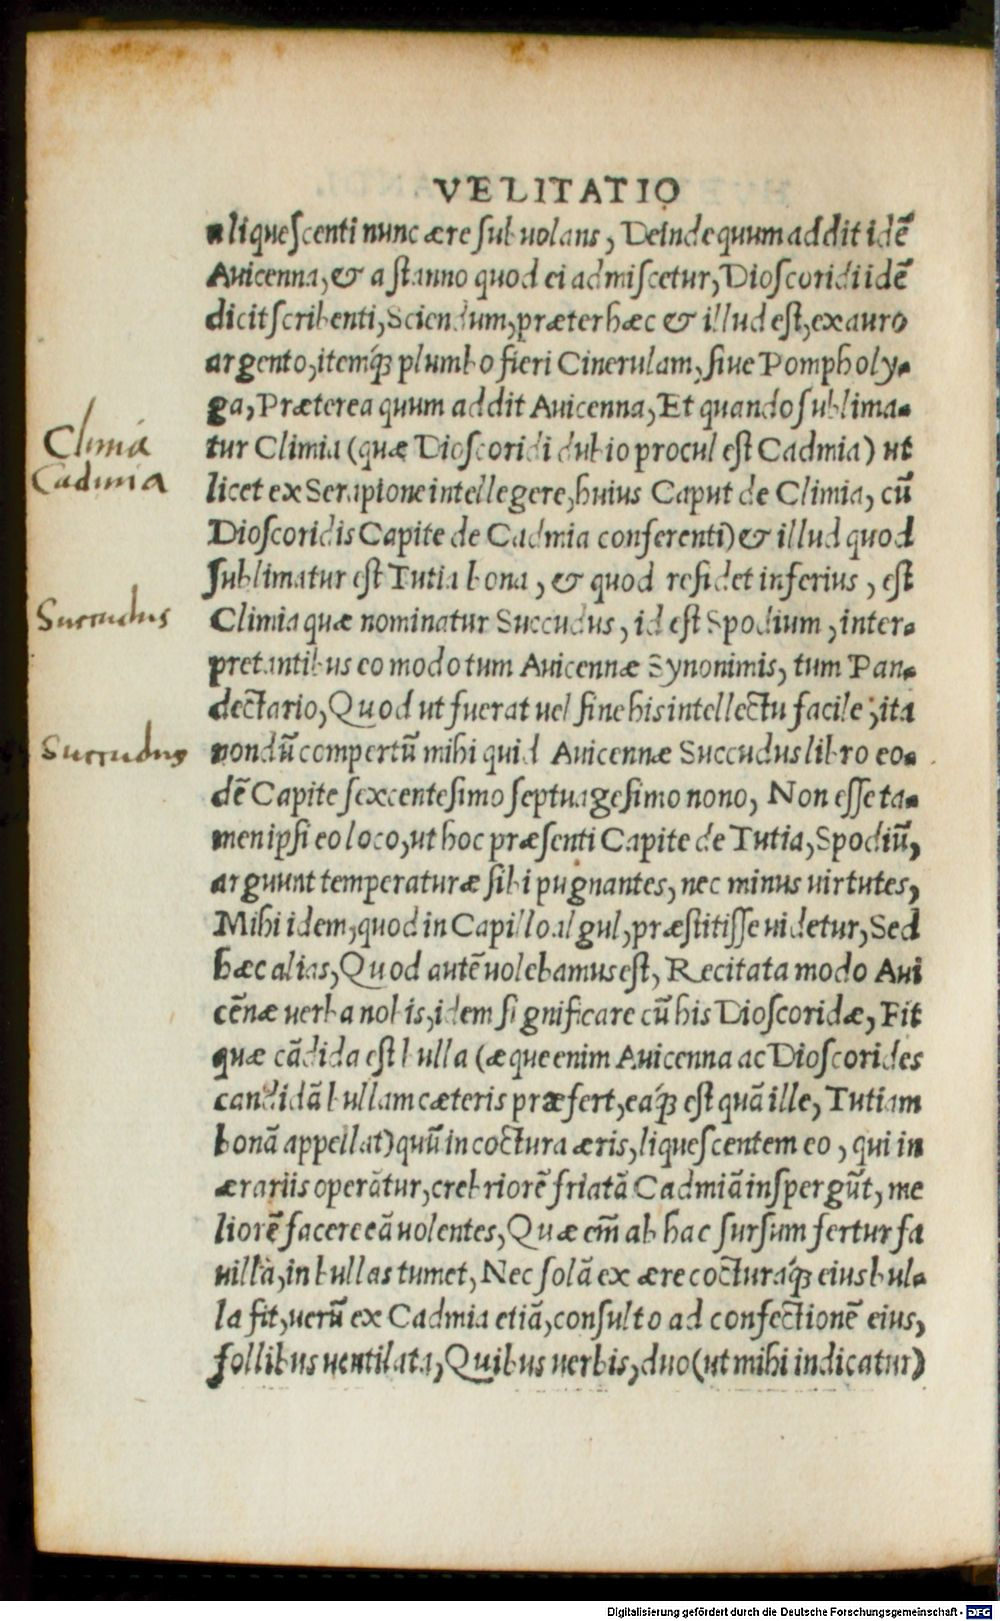 VELITATIO
aliquescenti nunc ære subuolans, Deinde quum addit idẽ
Auicenna, & a stanno quod ei admiscetur, Dioscoridi idẽ
dicit scribenti, Sciendum, præter hæc & illud est, ex auro
argento, itemq́ꝫ plumbo fieri Cinerulam, siue Pompholy-
ga, Præterea quum addit Auicenna, Et quando sublima-
Climia
tur Climia (quæ Dioscoridi dubio procul est Cadmia) ut
Cadmia
licet ex Serapione intellegere, huius Caput de Climia, cũ
Dioscoridis Capite de Cadmia conferenti) & illud quod
sublimatur est Tutia bona, & quod residet inferius, est
Succudus
Climia quæ nominatur Succudus, id est Spodium, inter-
pretantibus eo modo tum Auicennæ Synonimis, tum Pan-
dectario, Quod ut fuerat uel sine his intellectu facile, ita
Succudus
nondũ compertũ mihi quid Auicennæ Succudus libro eo-
dẽ Capite sexcentesimo septuagesimo nono, Non esse ta-
men ipsi eo loco, ut hoc præsenti Capite de Tutia, Spodiũ,
arguunt temperaturæ sibi pugnantes, nec minus uirtutes,
Mihi idem, quod in Capillo algul, præstitisse uidetur, Sed
hæc alias, Quod autẽ uolebamus est, Recitata modo Aui
cẽnæ uerba nobis, idem significare cũ his Dioscoridæ, Fit
quæ cãdida est bulla (æque enim Auicenna ac Dioscorides
candidã bullam cæteris præfert, eáq́ꝫ est quã ille, Tutiam
bonã appellat) quũ in coctura æris, liquescentem eo, qui in
ærariis operãtur, crebriorẽ friatã Cadmiã inspergũt, me
liorẽ facere eã uolentes, Quæ em̃ ab hac sursum fertur fa
uilla, in bullas tumet, Nec solã ex ære cocturaq́ꝫ eius bul-
la fit, uerũ ex Cadmia etiã, consulto ad confectionẽ eius,
follibus uentilata, Quibus uerbis, duo (ut mihi indicatur)
Digitalisierung gefördert durch die Deutsche Forschungsgemeinschaft - DFG